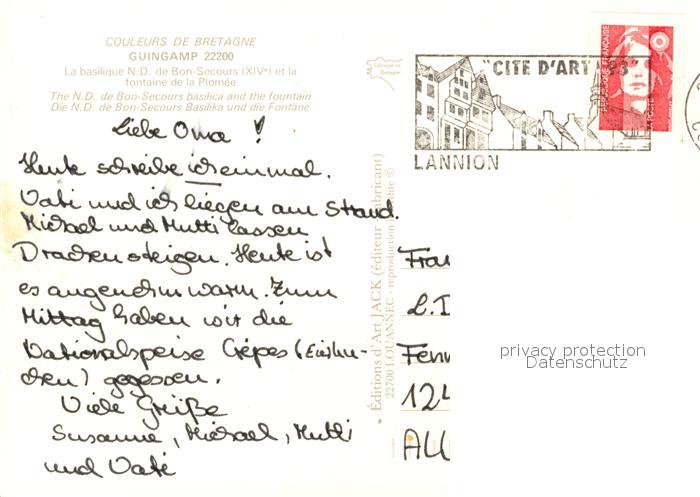 COULEURS DE BRETAGNE
GUINGAMP 22200
La basilique N.D. de Bon-Secours (XIVe) et la
fontaine de la Plomée
The N.D. de Bon-Secours basilica and the fountain
Die N.D. de Bon-Secours Basilika und die Fontäne
Liebe Oma !
Heute schreibe ich einmal.
Vati und ich liegen am Strand.
Michael und Mutti lassen
Drachen steigen. Heute ist
es angenehm warm. Zum
Mittag haben wir die
Nationalspeise Crêpes (Eierku-
chen) gegessen.
Viele Grüße
Susanne, Michael, Mutti
und Vati
• Éditions d'Art JACK (éditeur fabricant)
22700 LOUANNEC - reproduction interdite ©
"CITE D'ART
LANNION
RÉPUBLIQUE FRANÇAISE
LA POSTE
Frau
L.
Fenn
124
ALL
privacy protection
Datenschutz